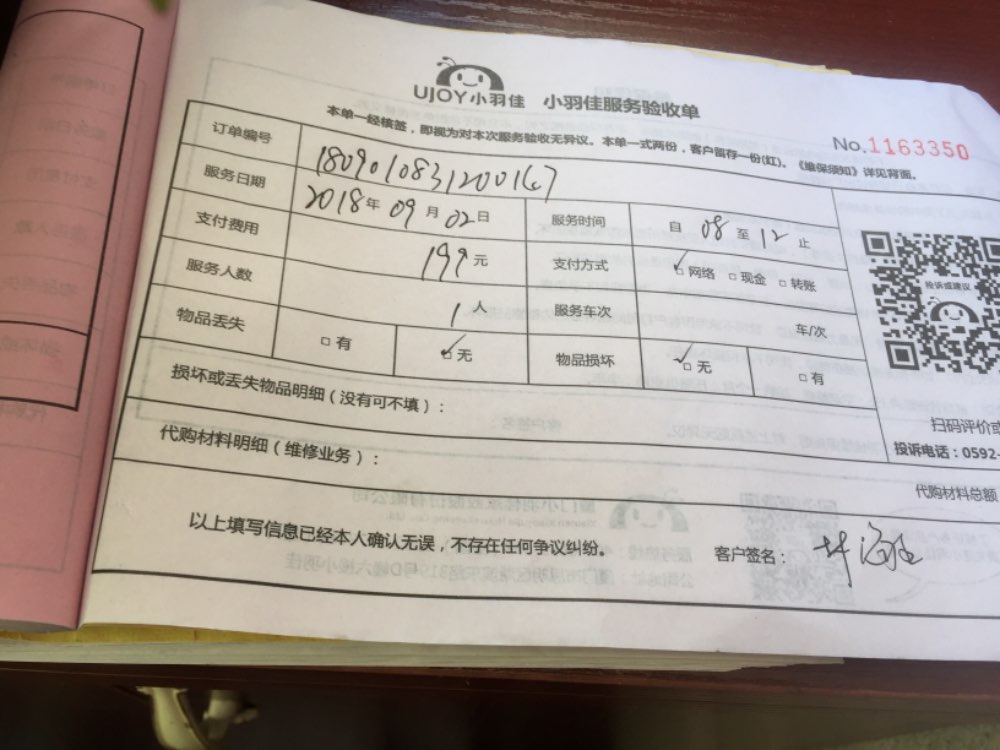 UJOY小羽佳 小羽佳服务验收单
本单一经核签，即视为对本次服务验收无异议。本单一式两份，客户留存一份(红)。《维保须知》详见背面。
No.1163350
订单编号 1809010831200167
服务日期 2018年09月02日 服务时间 自08至12止
支付费用 199元 支付方式 网络 现金 转账
服务人数 1人 服务车次 车/次
物品丢失 有 无 物品损坏 无 有
投诉或建议
损坏或丢失物品明细（没有可不填）：
扫码评价或
代购材料明细（维修业务）：
投诉电话：0592-
代购材料总额
以上填写信息已经本人确认无误，不存在任何争议纠纷。 客户签名：